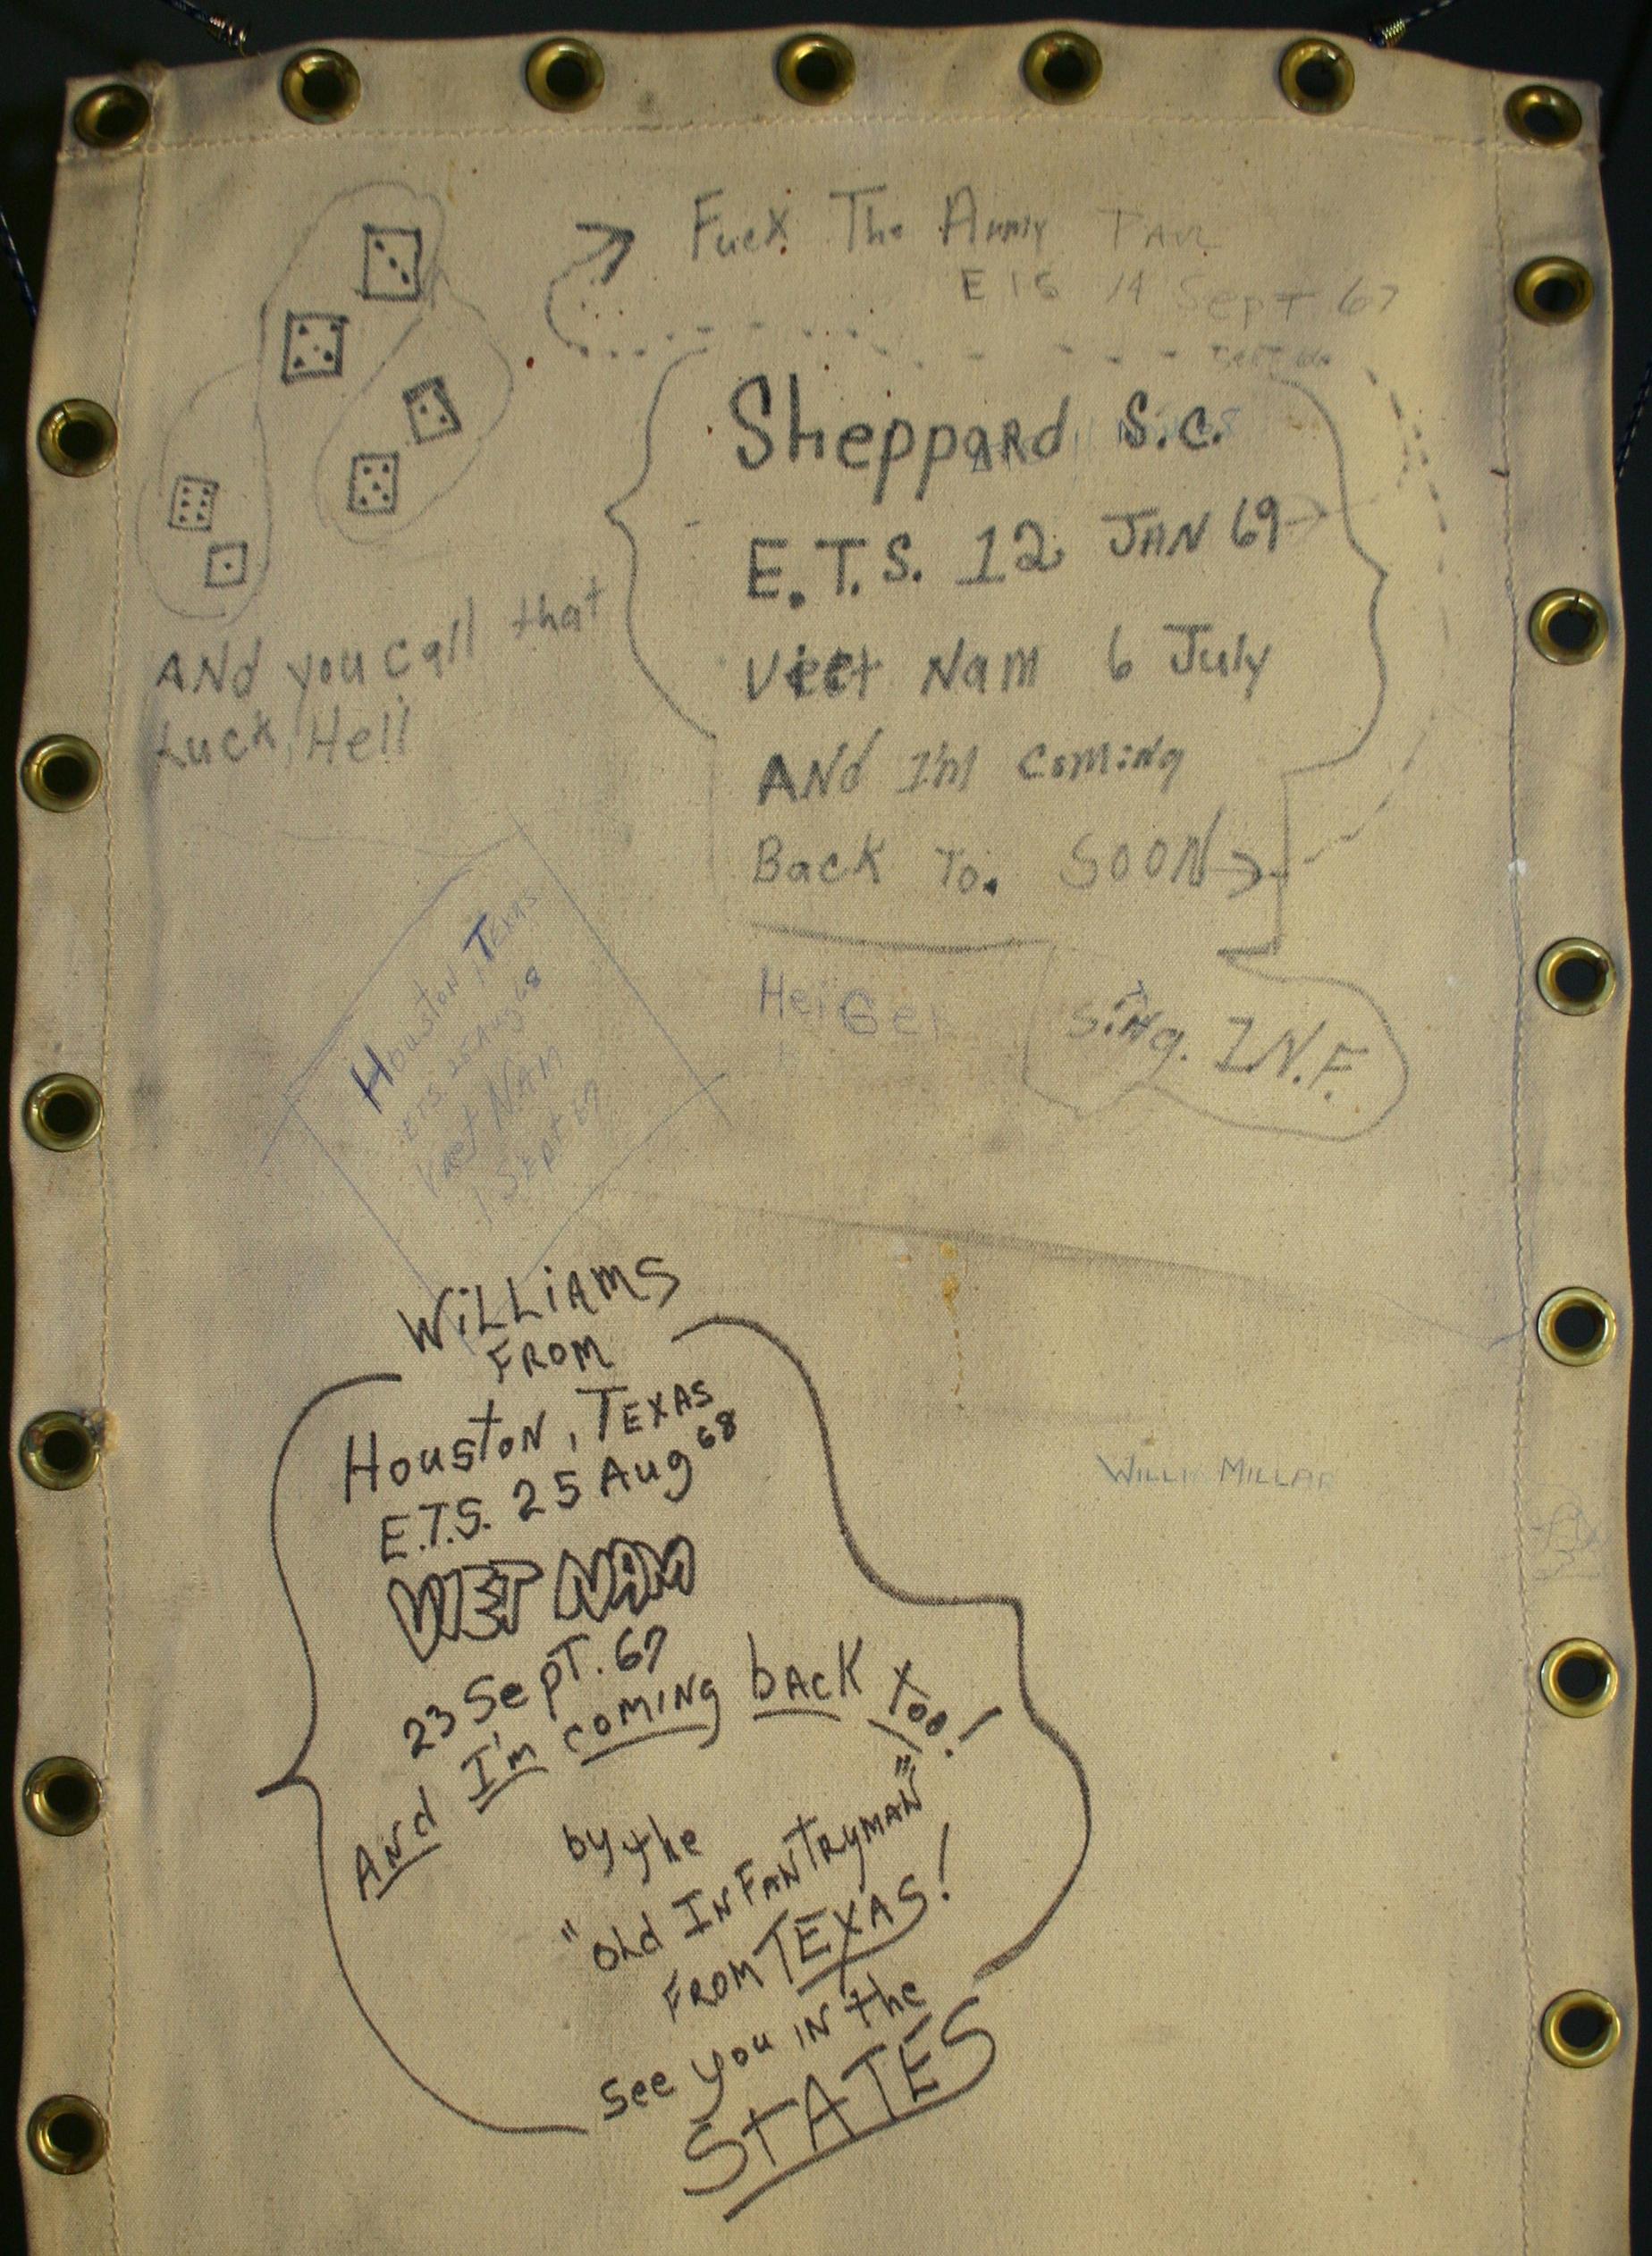 Fuck The Army PAUL
ETS 14 Sept 67
Sheppard S.C.
E.T.S. 12 JAN 69
Viet Nam 6 July
ANd I'M ComiNg
Back To. SOON
ANd you call that
Luck, Hell
HeiGer
I.N.F.
Houston, Texas
ETS. 25 Aug 68
Viet NAM
1 Sept 67
WiLLiAMS
FROM
Houston, TEXAS
E.T.S. 25 Aug 68
VIET NAM
23 SepT. 67
ANd I'm comiNg bAcK Too!
by the
"OLd INFANTRYMAN"
FROM TEXAS!
See you iN the
STATES
MILLAR